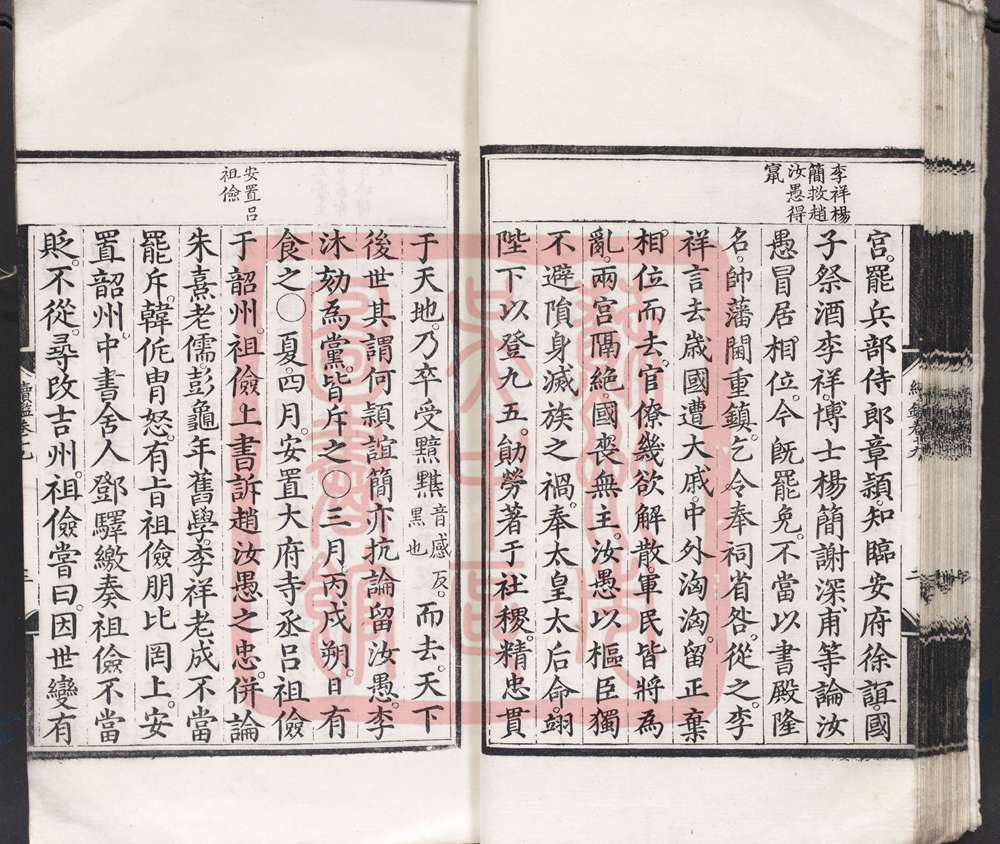 李祥楊
簡救趙
汝愚得
竄
宮。罷兵部侍郎章頴。知臨安府徐誼。國
子祭酒李祥。博士楊簡謝深甫等論汝
愚冒居相位。今既罷免。不當以書殿隆
名。帥藩閫重鎮。乞令奉祠省咎。從之。李
祥言去歲國遭大戚。中外洶洶。留正棄
相位而去。官僚幾欲解散。軍民皆將為
亂。兩宮隔絕。國喪無主。汝愚以樞臣獨
不避隕身滅族之禍。奉太皇太后命。翊
陛下以登九五。勛勞著于社稷。精忠貫
二
安置呂
祖儉
于天地。乃卒受黮黮音感反。黑也而去。天下
後世其謂何頴誼簡亦抗論留汝愚。李
沐劾為黨。皆斥之〇三月丙戌朔。日有
食之〇夏。四月。安置大府寺丞呂祖儉
于韶州。祖儉上書訴趙汝愚之忠。併論
朱熹老儒。彭龜年舊學。李祥老成不當
罷斥。韓侂冑怒。有旨祖儉朋比罔上。安
置韶州。中書舍人鄧驛繳奏祖儉不當
貶。不從。尋改吉州。祖儉嘗曰。因世變有
續鑑卷十九
三